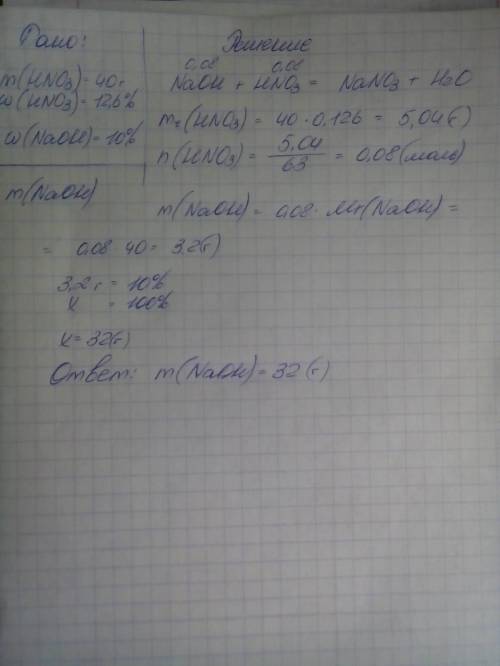 Дано:
m(HNO3) = 40 г
w(HNO3) = 12,6%
w(NaOH) = 10%
m(NaOH)
Решение
0,08 0,08
NaOH + HNO3 = NaNO3 + H2O
m2(HNO3) = 40 · 0,126 = 5,04(г)
n(HNO3) = 5,04/63 = 0,08(моль)
m(NaOH) = 0,08 · Mr(NaOH) =
= 0,08 · 40 = 3,2(г)
3,2 г = 10%
x = 100%
x = 32(г)
Ответ: m(NaOH) = 32(г)